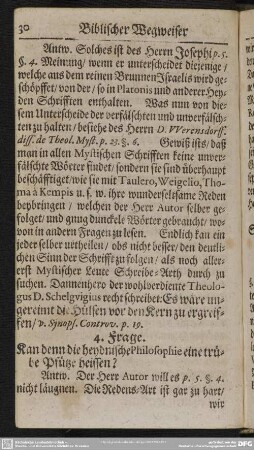 30 Biblischer Wegweiser
Antw. Solches ist des Herrn Josephi p. 5.
§. 4. Meinung/ wenn er unterscheidet diejenige/
welche aus dem reinen Brunnen Israelis wird ge-
schöpffet/ von der/ so in Platonis und anderer Hey-
den Schrifften enthalten. Was nun von die-
sem Unterscheide der verfälschten und unverfälsch-
ten zu halten/ besiehe des Herrn D. VVernsdorff.
diss. de Theol. Myst. p. 23. §. 6. Gewiß ists/ daß
man in allen Mystischen Schrifften keine unver-
fälschte Wörter findet/ sondern sie sind überhaupt
beschäfftiget/ wie sie mit Taulero, Weigelio, Tho-
ma à Kempis u. s. w. ihre wunderseltsame Reden
beybringen/ welchen der Herr Autor selber ge-
folget/ und gnug dunckele Wörter gebraucht/ wo-
von in andern Fragen zu lesen. Endlich kan ein
jeder selber urtheilen/ obs nicht besser/ den deutli-
chen Sinn der Schrifft zu folgen/ als noch aller-
erst Mystischer Leute Schreibe-Arth durch zu
suchen. Dannenhero der wohlverdiente Theolo-
gus D. Schelgvigius recht schreibet: Es wäre un-
gereimt die Hülsen vor den Kern zu ergreif-
fen/ v. Synops. Controv. p. 19.
4. Frage.
Kan denn die heydnische Philosophie eine trü-
be Pfütze heissen?
Antw. Der Herr Autor will es p. 5. §. 4.
nicht läugnen. Die Redens-Art ist gar zu hart/
wir